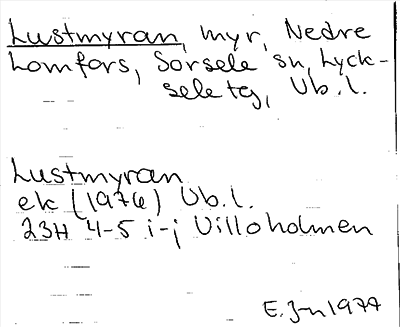 Lustmyran, myr, Nedre
Lomfors, Sorsele sn, Lyck-
sele tg, Vb. l.
Lustmyran
ek (1976) Vb. l.
23H 4-5 i-j Villoholmen
E. J-n 1977